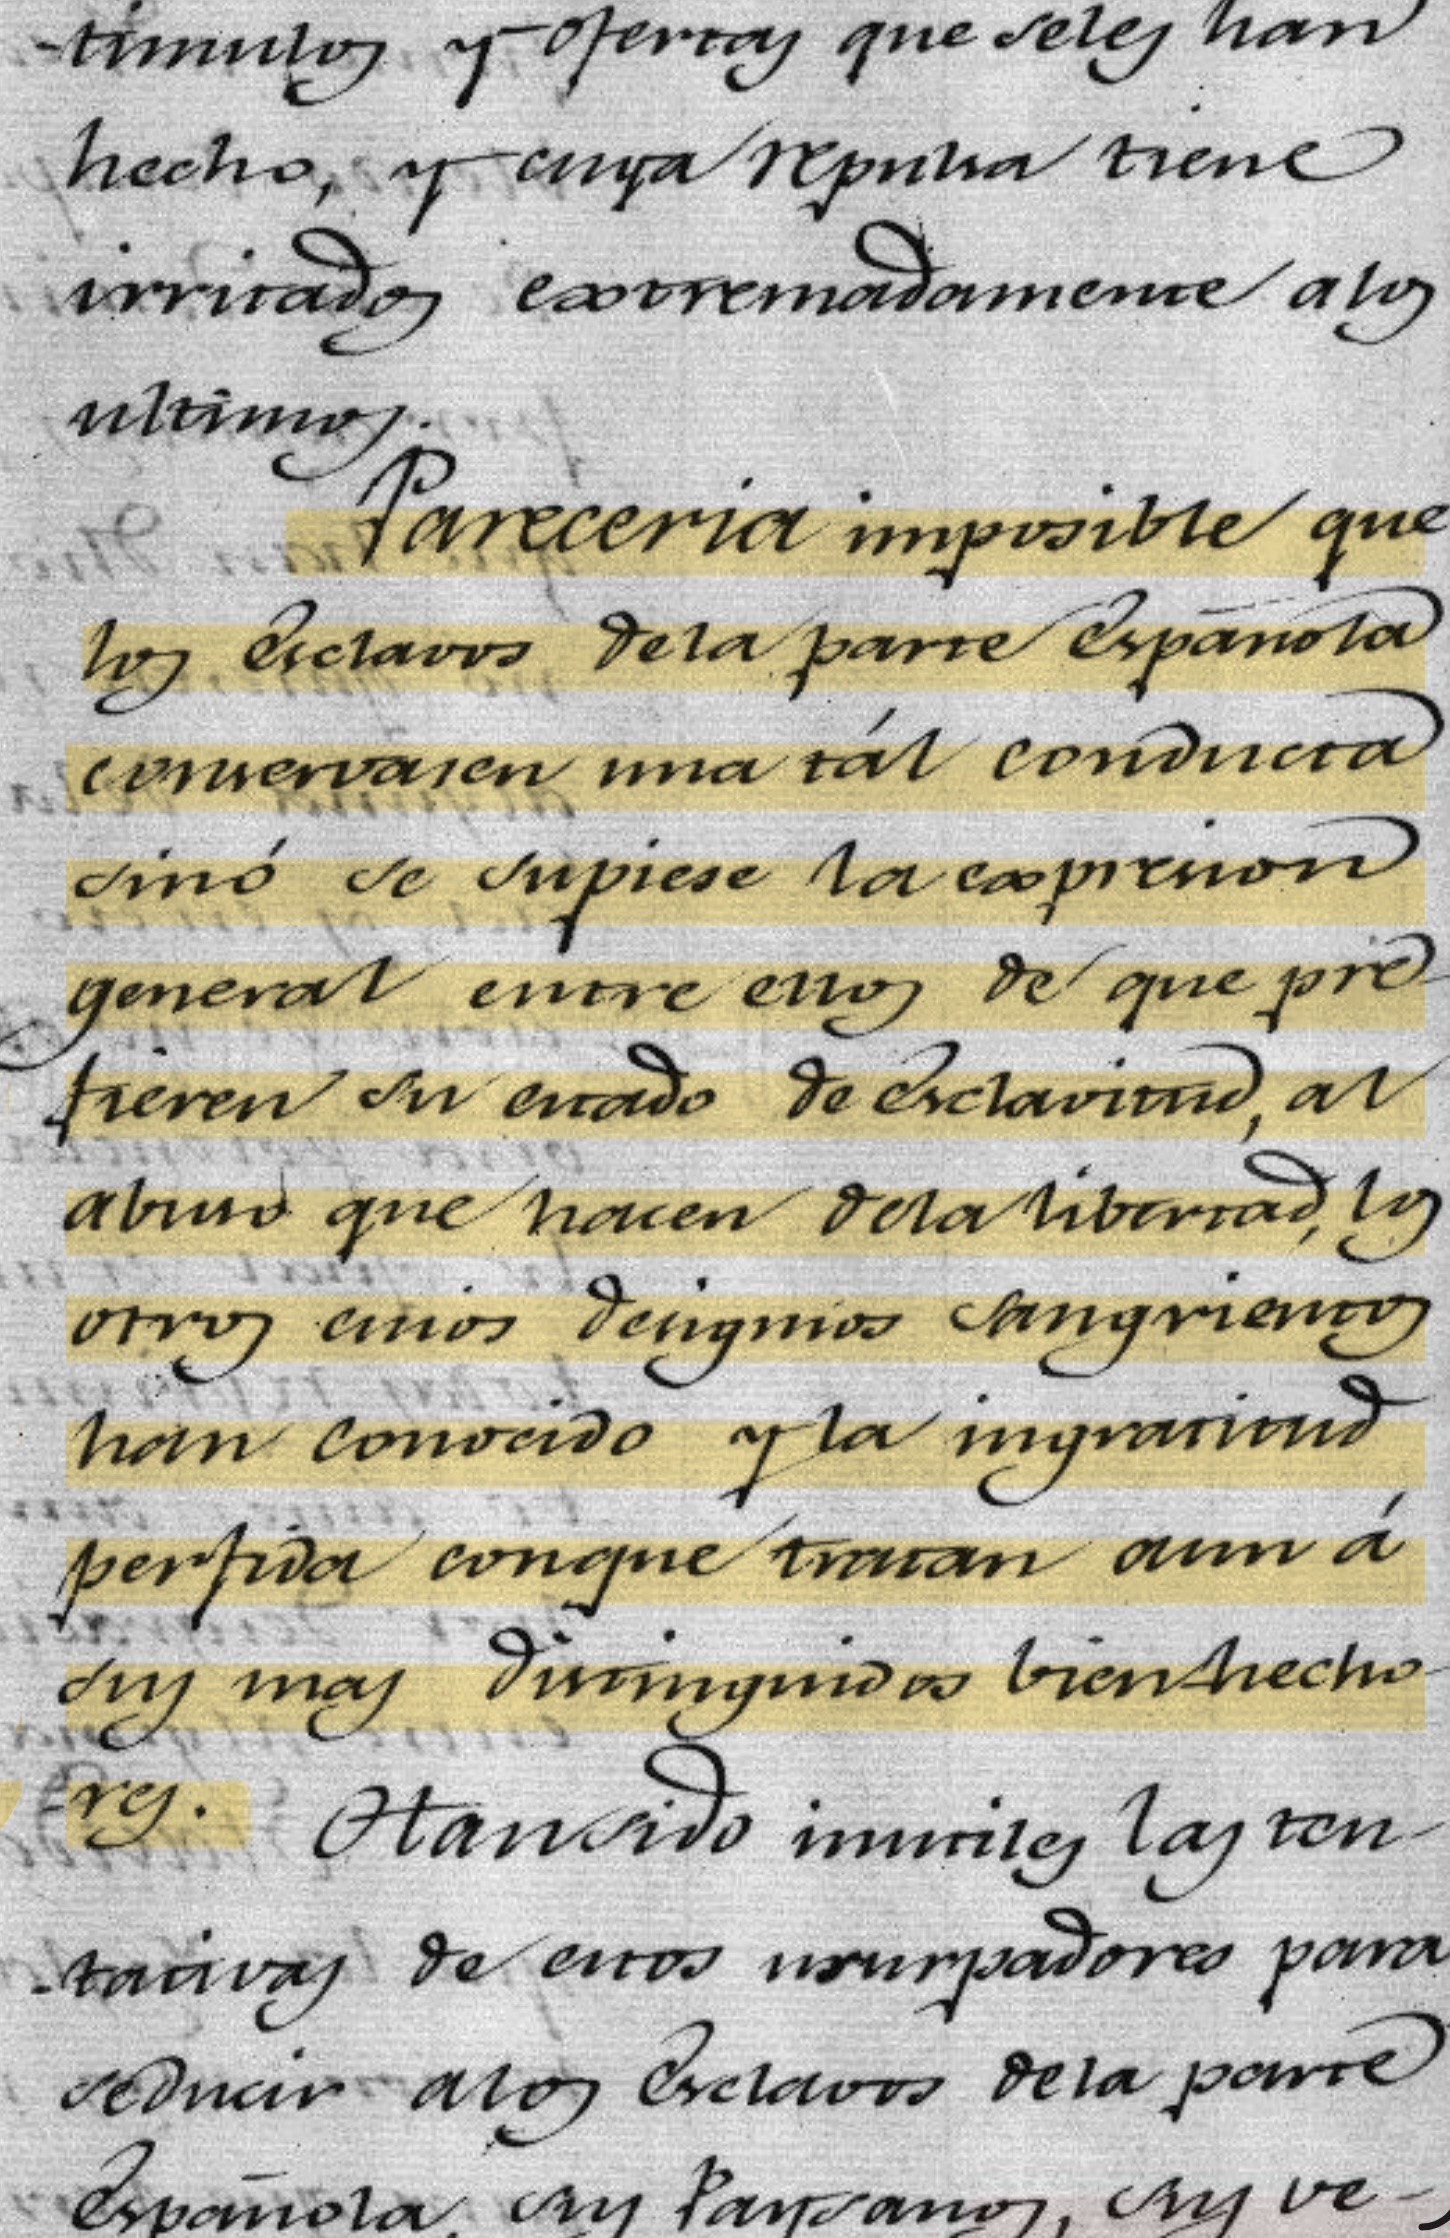 -timulos y ofertas que seles han
hecho, y cuya repulsa tiene
irritados extremadamente alos
ultimos.
Pareceria imposible que
los Esclavos dela parte Española
conservasen una tál conducta
sinó se supiese la expresion
general entre ellos de que pre-
fieren su estado de Esclavitud, al
abuso que hacen dela libertad, los
otros cuios designios sangrientos
han conocido y la ingratitud
perfida conque tratan aun á
sus mas distinguidos bienhecho-
-res. Han sido inutiles las ten-
-tativas de estos usurpadores para
seducir alos Esclavos dela parte
Española, sus Paysanos, sus ve-